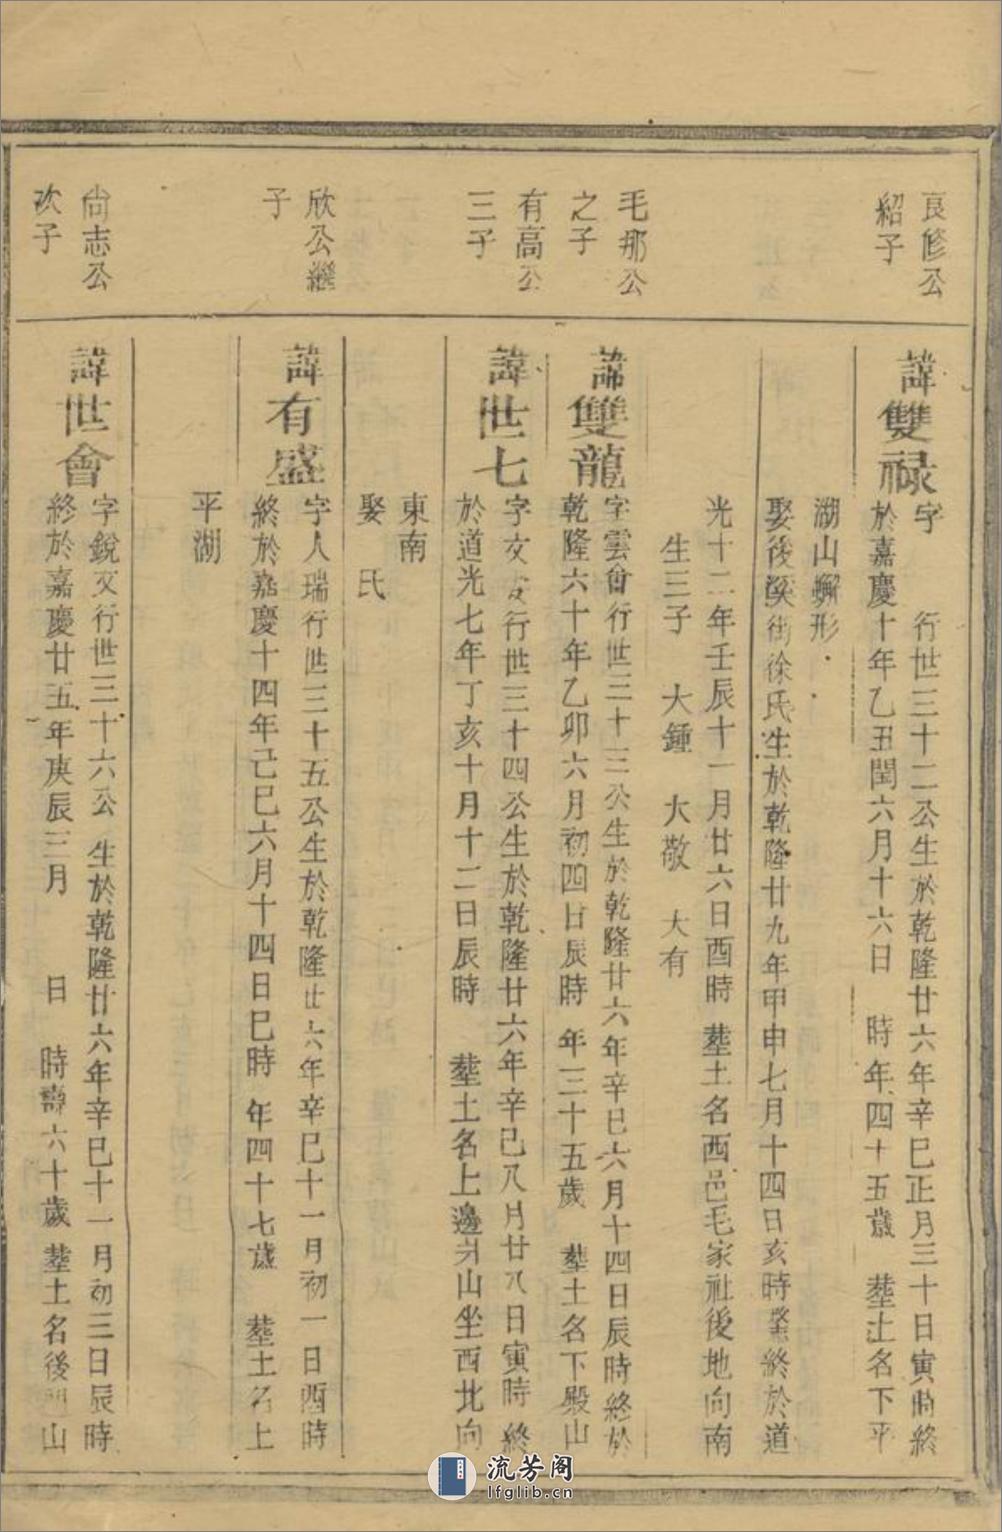 良修公
紹子
諱雙祿
字　行世三十二公生於乾隆廿六年辛巳正月三十日寅時終
於嘉慶十年乙丑閏六月十六日　時年四十五歲　塟土名下平
湖山蠏形
娶後溪街徐氏生於乾隆廿九年甲申七月十四日亥時終於道
光十二年壬辰十一月廿六日酉時　塟土名西邑毛家社後地向南
生三子　大鍾　大敬　大有
毛那公
之子
諱雙龍
字雲會行世三十三公生於乾隆廿六年辛巳六月十四日辰時終於
乾隆六十年乙卯六月初四日辰時　年三十五歲　塟土名下殿山
有高公
三子
諱世七
字文　行世三十四公生於乾隆廿六年辛巳八月廿八日寅時終
於道光七年丁亥十月十二日辰時　塟土名上邊　山坐西北向
東南
娶　氏
欣公繼
子
諱有盛
字人瑞行世三十五公生於乾隆廿六年辛巳十一月初一日酉時
終於嘉慶十四年己巳六月十四日巳時　年四十七歲　塟土名上
平湖
尚志公
次子
諱世會
字銳文行世三十六公　生於乾隆廿六年辛巳十一月初三日辰時
終於嘉慶廿五年庚辰三月　日　時壽六十歲　塟土名後門山
流芳阁
lfglib.cn